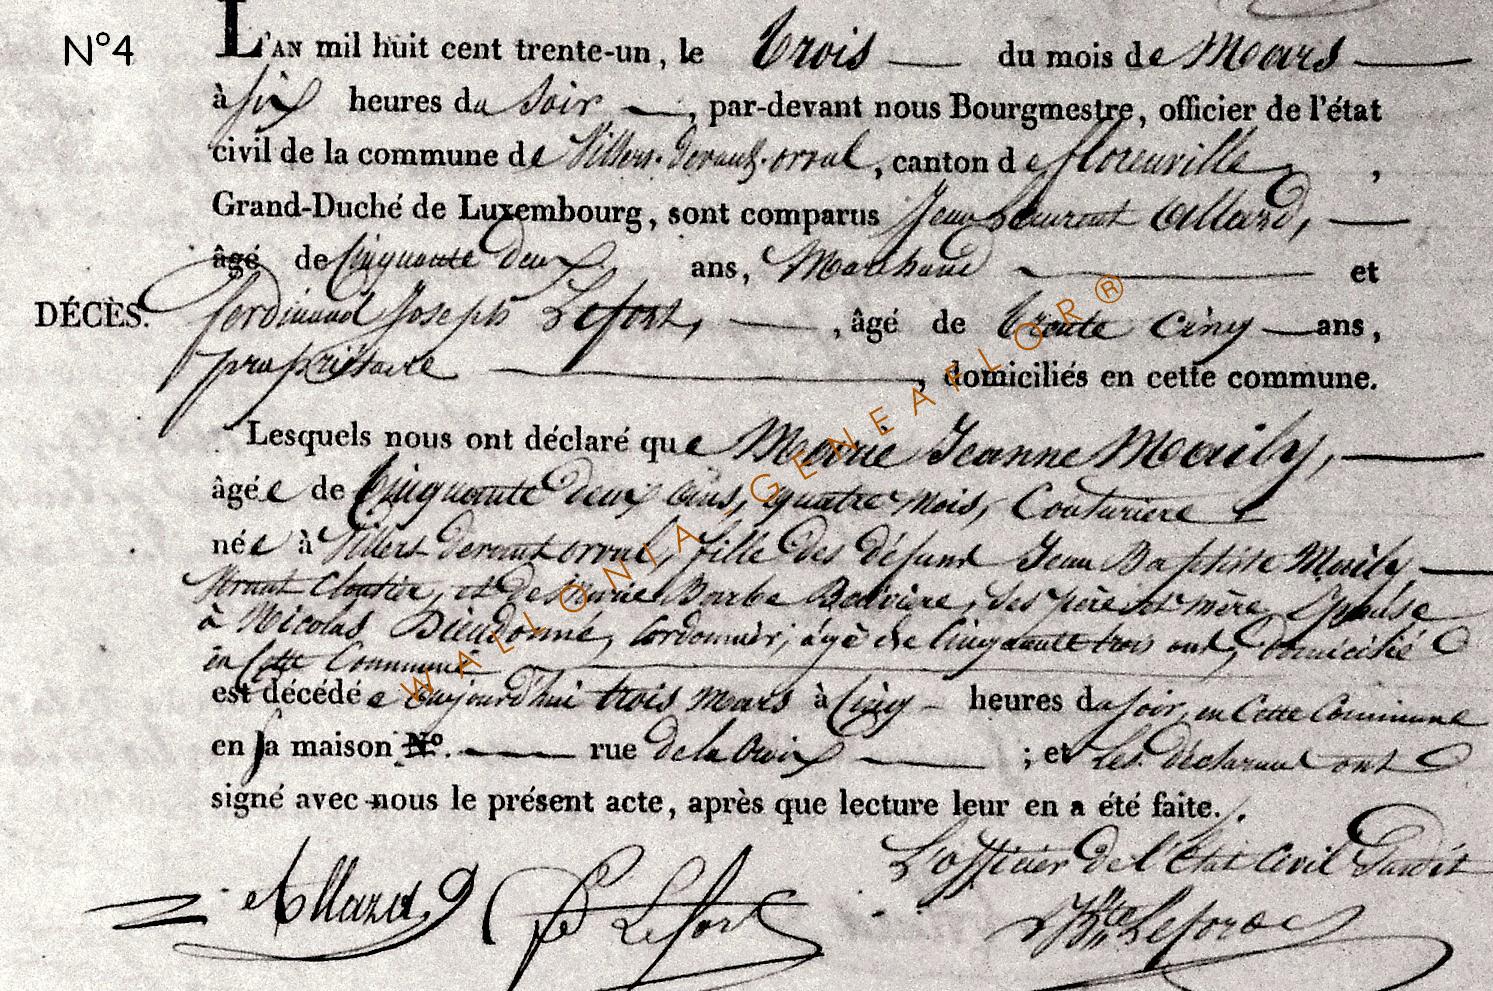 N°4
L'AN mil huit cent trente-un, le trois du mois de Mars
à six heures du soir, par-devant nous Bourgmestre, officier de l'état
civil de la commune de Villers-devant-orval, canton de florenville,
Grand-Duché de Luxembourg, sont comparus Jean Laurent Allard,
âgé de Cinquante deux ans, Marchand et
DÉCÈS. ferdinand Joseph Lefort, âgé de trente cinq ans,
propriétaire, domiciliés en cette commune.
Lesquels nous ont déclaré que Marie Jeanne Maily,
âgée de Cinquante deux ans, quatre mois, Couturiere
née à Villers devant orval, fille des défunt Jean Baptiste Maily
vivant Cloutier, et de Marie Barbe, ses père et mère, Epouse
à Nicolas Dieudonné, Cordonnier, âgé de Cinquante trois ans, domicilié
en Cette Commune
est décédée aujourd'hui trois mars à Cinq heures du soir, en Cette Commune
en sa maison N°. rue de la Croix ; et les déclarant ont
signé avec nous le présent acte, après que lecture leur en a été faite.
L'officier de l'état Civil Susdit
Allard
Lefort
Lefort
WALLONIA-GENEAFLOR®